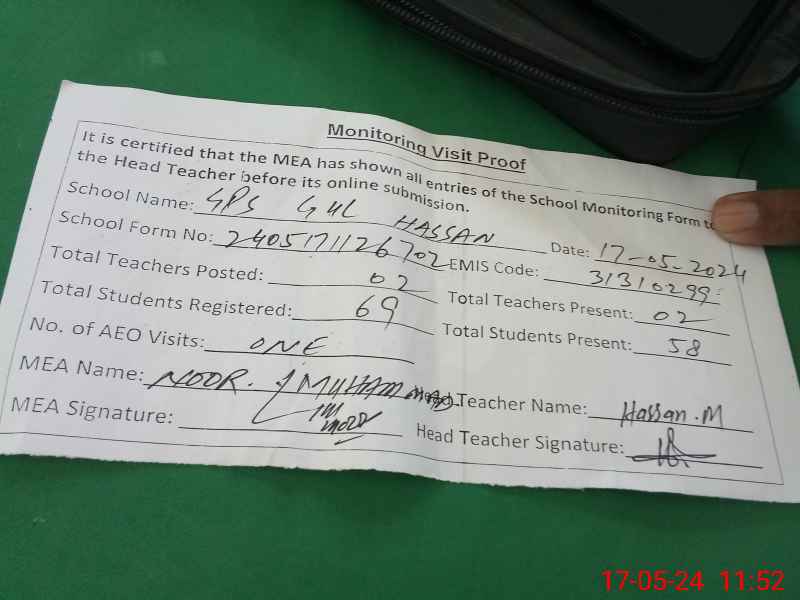 Monitoring Visit Proof
It is certified that the MEA has shown all entries of the School Monitoring Form to
the Head Teacher before its online submission.
School Name: GPS GUL HASSAN Date: 17-05-2024
School Form No: 2405171126702 EMIS Code: 31310299
Total Teachers Posted: 02 Total Teachers Present: 02
Total Students Registered: 69 Total Students Present: 58
No. of AEO Visits: ONE
MEA Name: NOOR. MUHAMMAD Head Teacher Name: Hassan.M
MEA Signature: Head Teacher Signature:
17-05-24 11:52